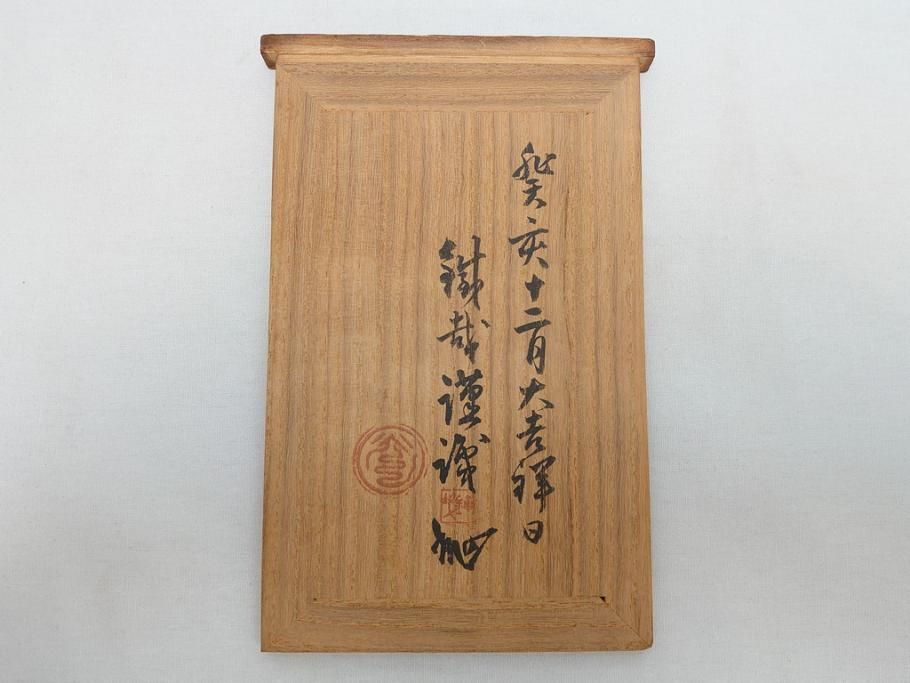 癸亥十二月大吉祥日
鐵哉謹識